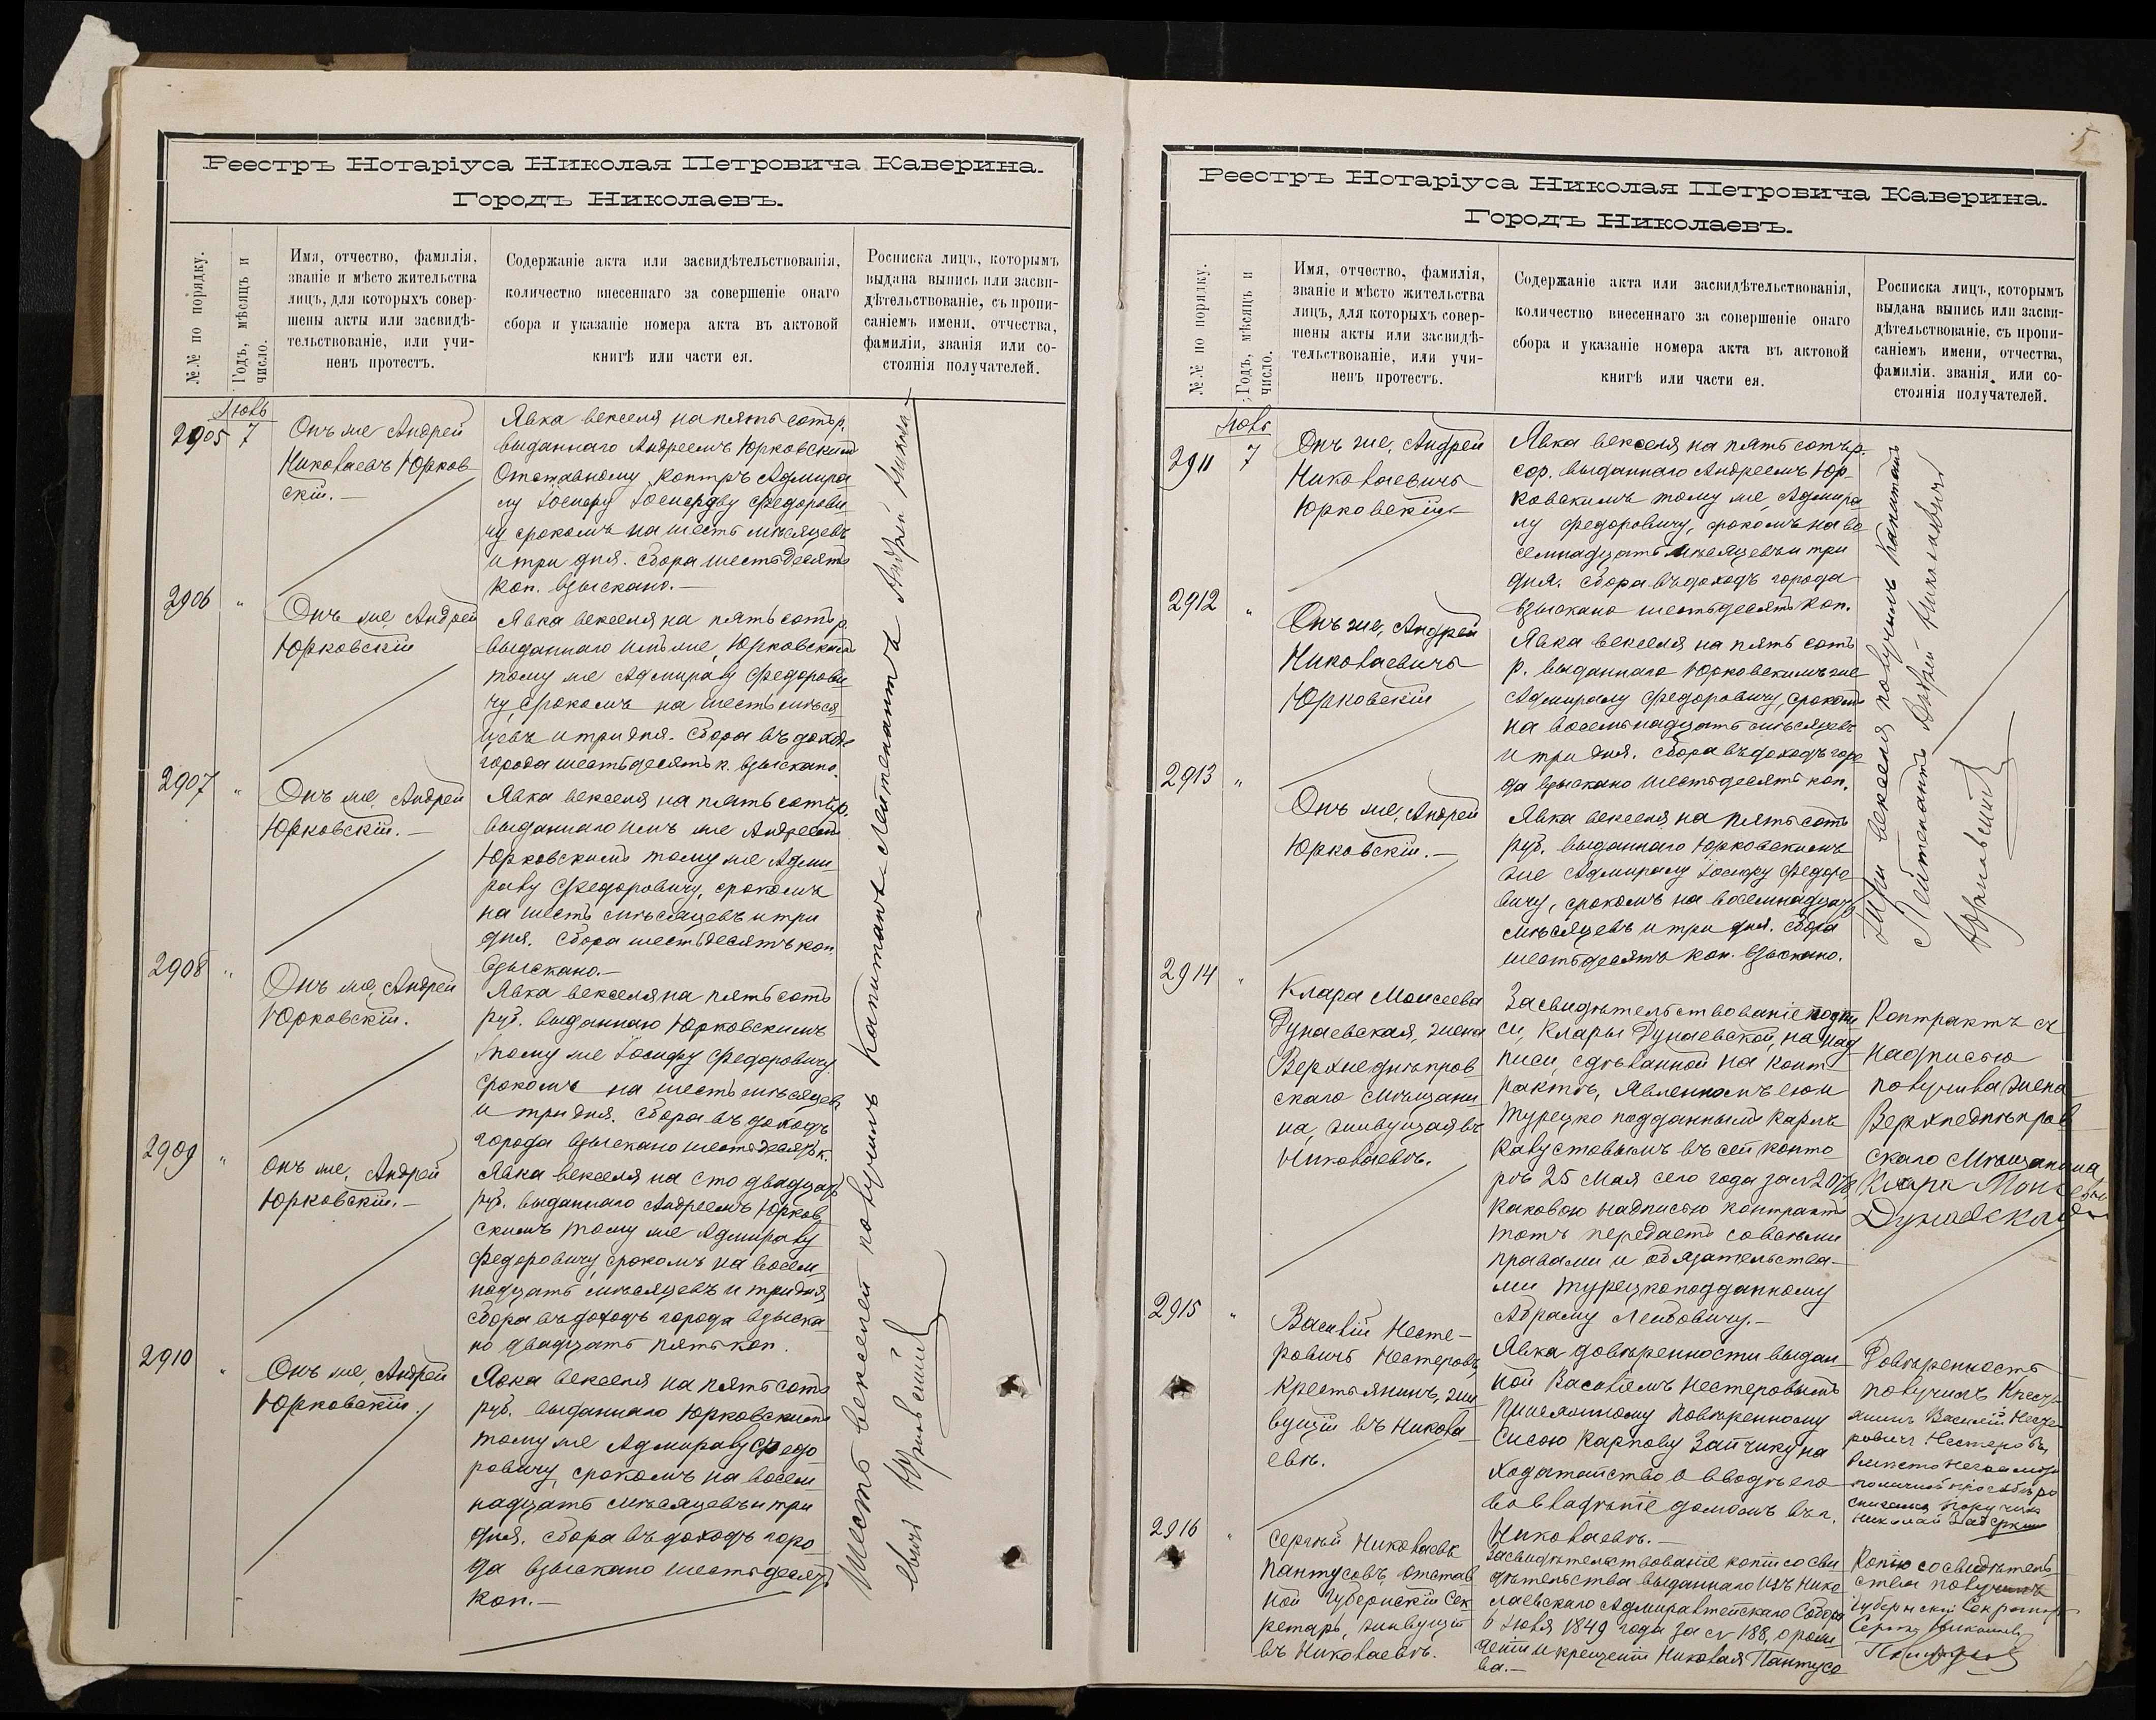 Реестръ Нотаріуса Николая Петровича Каверина.
Городъ Николаевъ.
№№ по порядку.
Годъ, мѣсяцъ и
число.
Имя, отчество, фамилія,
званіе и мѣсто жительства
лицъ, для которыхъ совер-
шены акты или засвидѣ-
тельствованіе, или учи-
ненъ протестъ.
Содержаніе акта или засвидѣтельствованія,
количество внесеннаго за совершеніе онаго
сбора и указаніе номера акта въ актовой
книгѣ или части ея.
Росписка лицъ, которымъ
выдана выпись или засви-
дѣтельствованіе, съ пропи-
саніемъ имени, отчества,
фамиліи, званія или со-
стоянія получателей.
Іюль
2905 7
Онъ же Андрей
Николаевъ Юрков
скій.-
Явка векселя на пять сотъ р.
выданнаго Андреемъ Юрковскимъ
Отставному Контръ Адмира
лу Федорови
чу срокомъ на шесть мѣсяцевъ
и три дня. Сбора шестьдесятъ
коп. взыскано.-
2906 "
Онъ же, Андрей
Юрковскій
Явка векселя на пять сотъ р.
выданнаго имъ же, Юрковскимъ
тому же Адмиралу Федорови
чу, срокомъ на шесть мѣся
цевъ и три дня. Сбора въ доходъ
города шестьдесятъ к. взыскано.
2907 "
Онъ же, Андрей
Юрковскій.-
Явка векселя на пять сотъ р.
выданнаго имъ же Андреемъ
Юрковскимъ тому же Адми
ралу Федоровичу, срокомъ
на шесть мѣсяцевъ и три
дня. Сбора шестьдесятъ коп.
взыскано.-
2908 "
Онъ же, Андрей
Юрковскій.
Явка векселя на пять сотъ
руб. выданнаго Юрковскимъ
тому же Іосифу Федоровичу
срокомъ на шесть мѣсяцевъ
и три дня. Сбора въ доходъ
города взыскано шестьдесятъ к.
2909 "
Онъ же, Андрей
Юрковскій.-
Явка векселя на сто двадцать
руб. выданнаго Андреемъ Юрков
скимъ тому же Адмиралу
Федоровичу, срокомъ на восем
надцать мѣсяцевъ и три дня,
сбора въ доходъ города взыска
но двадцать пять коп.
2910 "
Онъ же, Андрей
Юрковскій.
Явка векселя на пять сотъ
руб. выданнаго Юрковскимъ
тому же Адмиралу Федо
ровичу, срокомъ на восем
надцать мѣсяцевъ и три
дня. Сбора въ доходъ горо
да взыскано шестьдесятъ
коп.-
Шесть векселей получилъ Капитанъ-Лейтенантъ Андрей Никола-
евичъ Юрковский
5
Реестръ Нотаріуса Николая Петровича Каверина.
Городъ Николаевъ.
№№ по порядку.
Годъ, мѣсяцъ и
число.
Имя, отчество, фамилія,
званіе и мѣсто жительства
лицъ, для которыхъ совер-
шены акты или засвидѣ-
тельствованіе, или учи-
ненъ протестъ.
Содержаніе акта или засвидѣтельствованія,
количество внесеннаго за совершеніе онаго
сбора и указаніе номера акта въ актовой
книгѣ или части ея.
Росписка лицъ, которымъ
выдана выпись или засви-
дѣтельствованіе, съ пропи-
саніемъ имени, отчества,
фамиліи. званія или со-
стоянія получателей.
Іюль
2911 7
Онъ же, Андрей
Николаевичъ
Юрковскій
Явка векселя на пять сотъ р.
сер. выданнаго Андреемъ Юр-
ковскимъ тому же, Адмира
лу Федоровичу, срокомъ на во
семнадцать мѣсяцевъ и три
дня. Сбора въ доходъ города
взыскано шестьдесятъ коп.
2912 "
Онъ же, Андрей
Николаевичъ
Юрковскій
Явка векселя на пять сотъ
р. выданнаго Юрковскимъ же
Адмиралу Федоровичу, срокомъ
на восемнадцать мѣсяцевъ
и три дня. Сбора въ доходъ горо
да взыскано шестьдесятъ коп.
2913 "
Онъ же, Андрей
Юрковскій.-
Явка векселя, на пять сотъ
руб. выданнаго Юрковскимъ
же Адмиралу Іосифу Федоро
вичу, срокомъ на восемнадцать
мѣсяцевъ и три дня. Сбора
шестьдесятъ коп. взыскано.
Три векселя получилъ Капитанъ
Лейтенантъ Андрей Николаевичъ
Юрковский
2914 "
Клара Моисеева
Дунаевская, жена
Верхнеднѣпров
скаго мѣщани
на, живущая въ
Николаевѣ.
Засвидѣтельствованіе подпи
си, Клары Дунаевской, на над
писи, сдѣланной на конт
рактѣ, явленномъ ею и
турецко подданнымъ Карлъ
Кавустовымъ въ сей конто
рѣ 25 Мая сего года за №
каковою надписью контрактъ
тотъ передаетъ со всѣми
правами и обязательства-
ми турецкоподданному
Абраму Лейбовичу.-
Контрактъ съ
надписью
получила жена
Верхнеднѣпров
скаго мѣщанина
Клара Моисеева
Дунаевская
2915 "
Василій Несте-
ровичъ Нестеровъ,
крестьянинъ, жи
вущій въ Никола
евѣ.
Явка довѣренности выдан-
ной Василіемъ Нестеровымъ
Присяжному Повѣренному
Сисою Карпову Зайчику на
ходатайство о вводѣ его
во владѣніе домомъ въ г.
Николаевѣ.-
Довѣренность
получилъ Кресть
янинъ Василій Несте
ровичъ Нестеровъ,
вмѣсто
Николай
2916 "
Сергѣй Николаевъ
Пантусовъ, отстав
ной Губернскій Сек
ретарь, живущій
въ Николаевѣ.
Засвидѣтельствованіе копіи со сви
дѣтельства выданнаго изъ Нико
лаевскаго Адмиралтейскаго Собора
6 Іюля 1849 года за № 188, о рож
деніи и крещеніи Николая Пантусо
ва.-
Копію со свидѣтель
ства получилъ
Губернскій Секретарь
Сергѣй Николаевъ
Пантусовъ